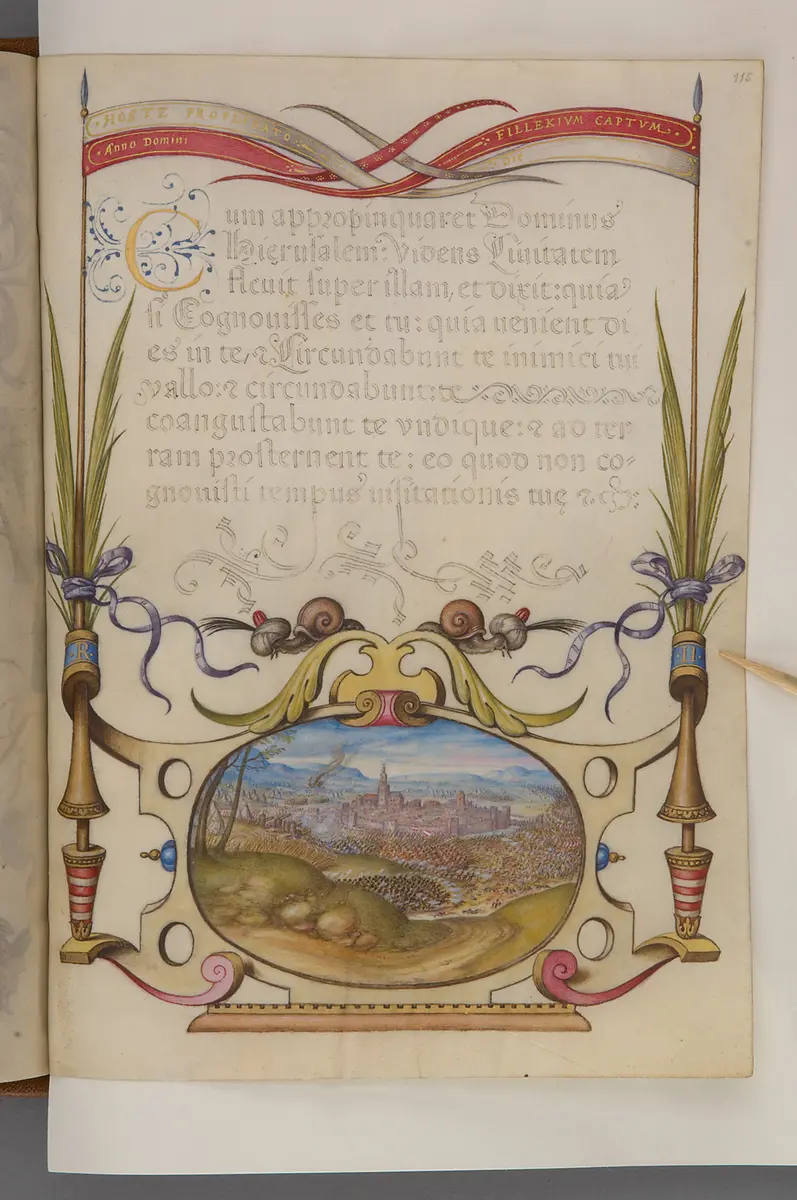 115
HOSTE PROFLIGATO
FILLEKIVM CAPTVM
Anno Domini
DIE
Cum appropinquaret Dominus
Hierusalem: Videns Ciuitatem
fleuit super illam, et dixit: quia
si Cognouisses et tu: quia uenient di
es in te, ⁊ Circundabunt te inimici tui
vallo: ⁊ circundabunt: te
coangustabunt te vndique: ⁊ ad ter
ram prosternent te: eo quod non co-
gnouisti tempus uisitationis tuę ⁊c:
·R·
·II·